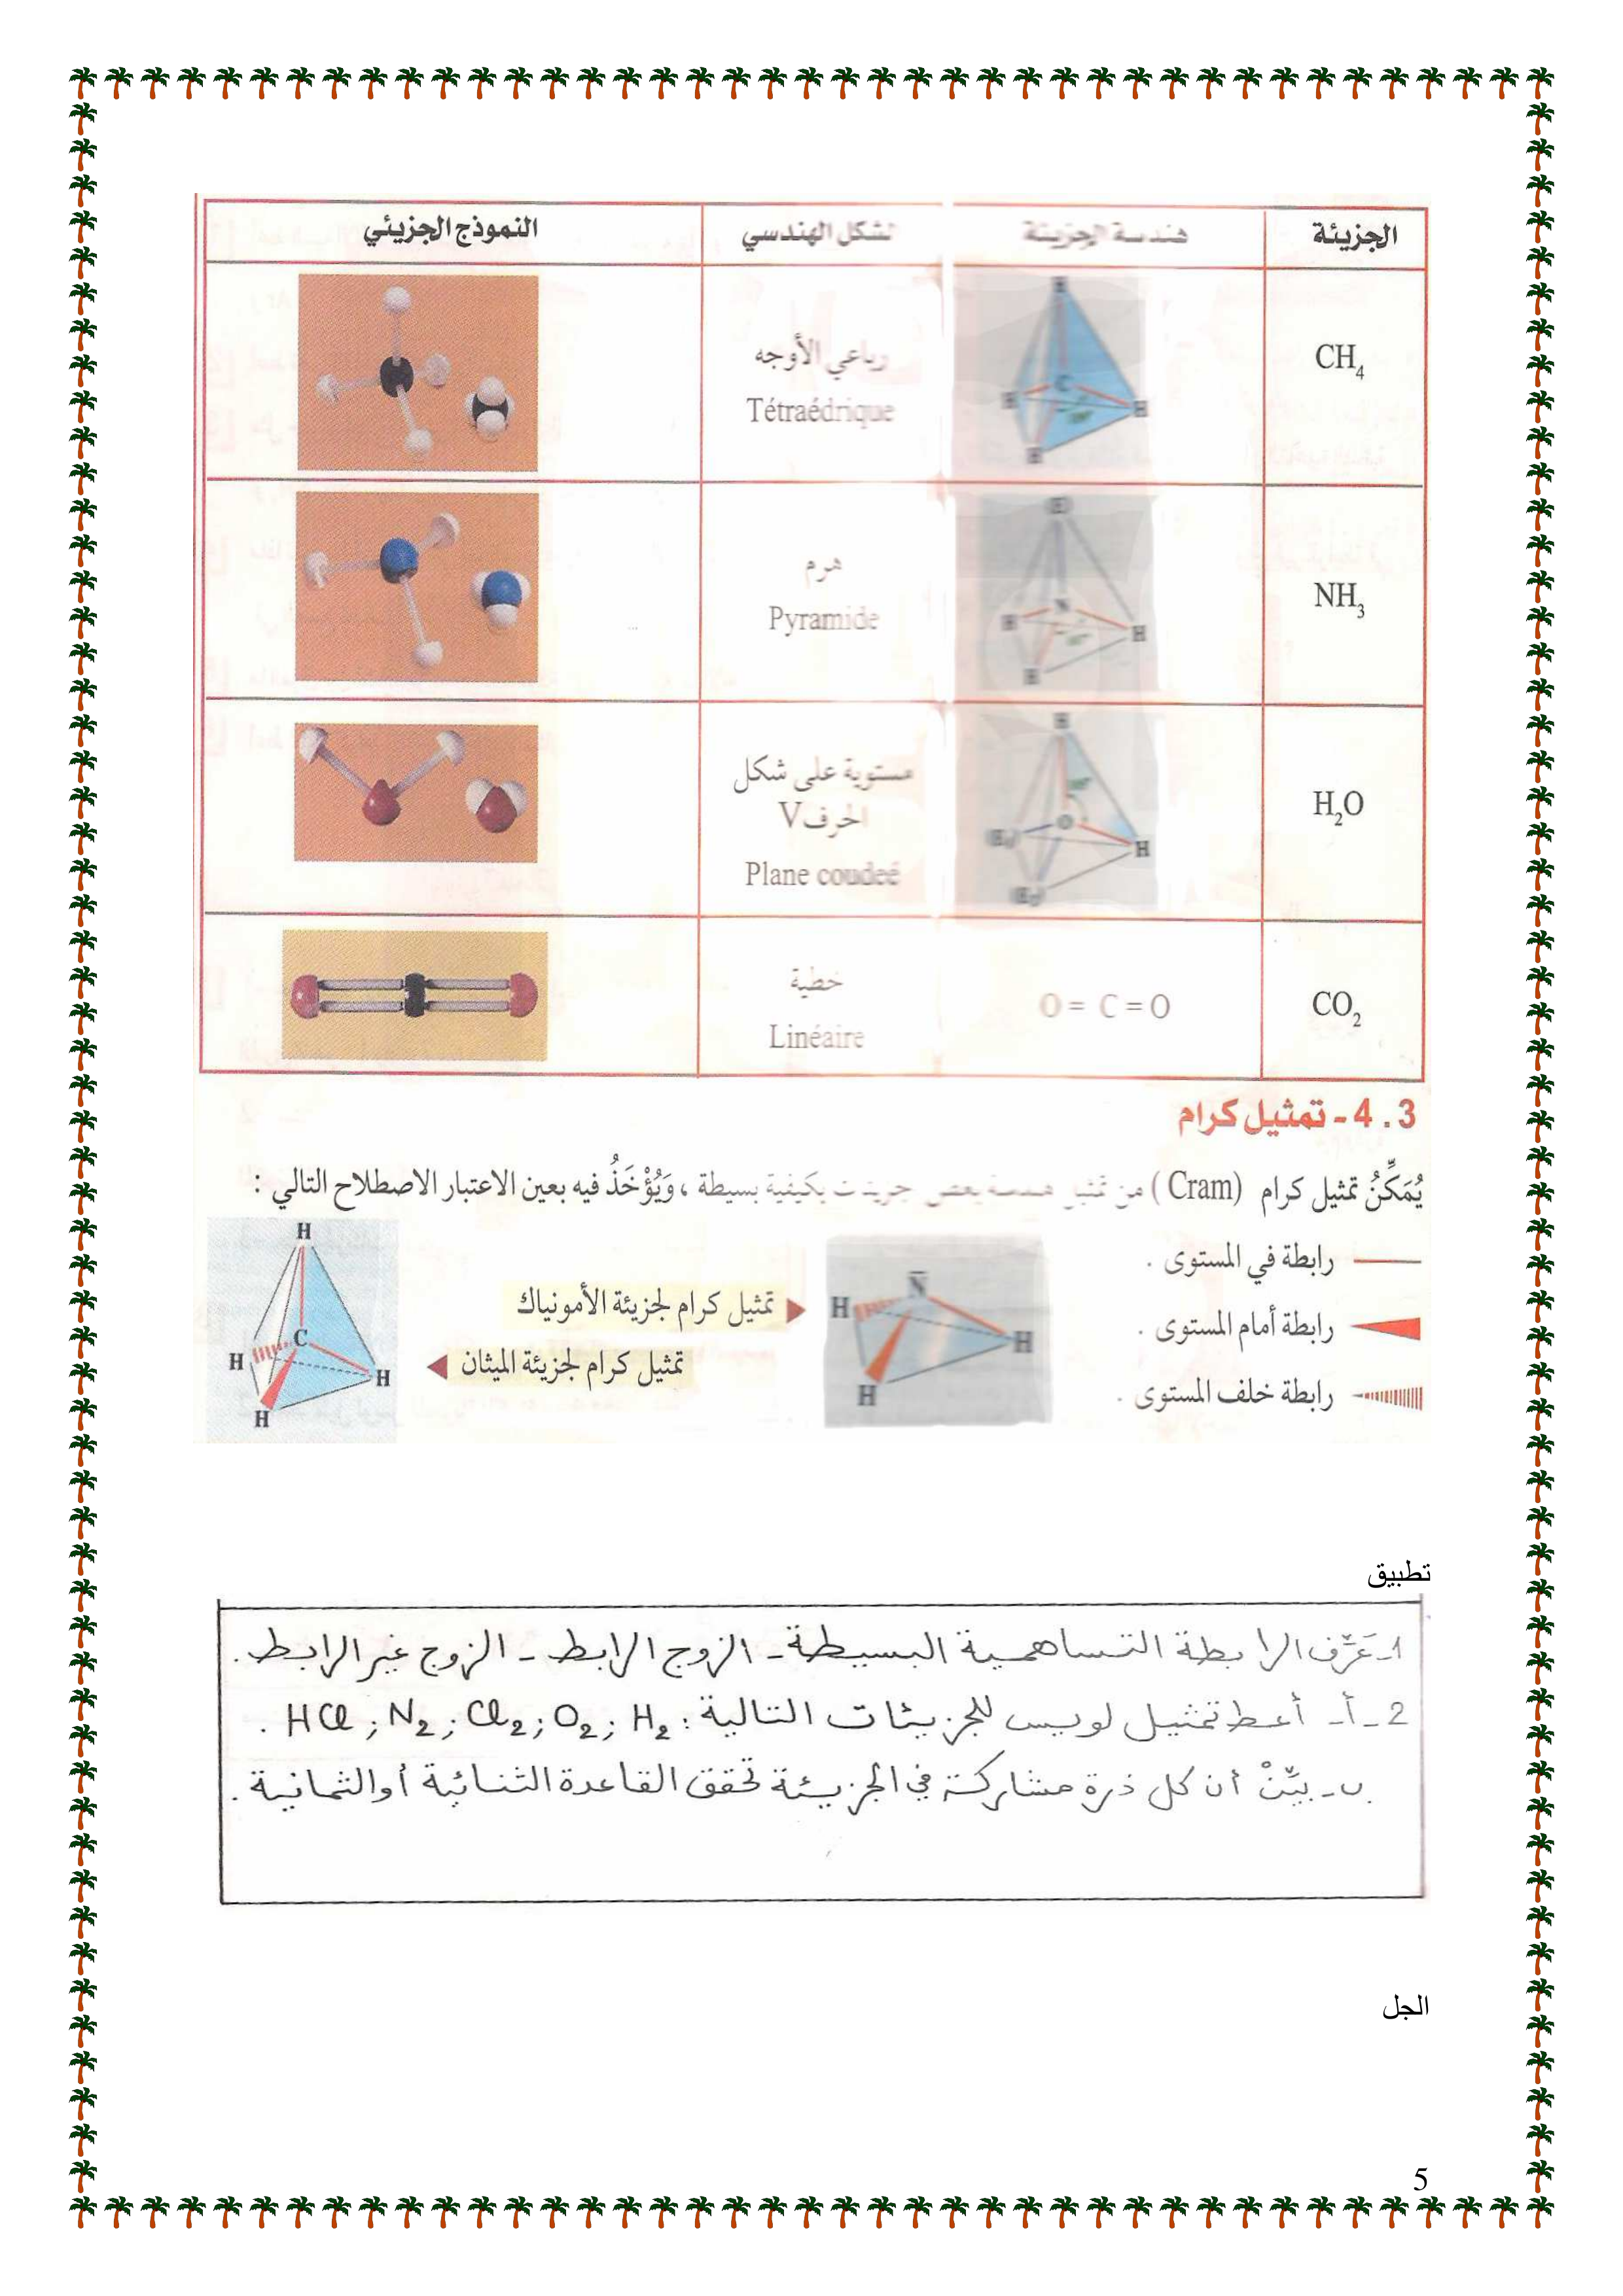 الجزيئة هندسة الجزيئة الشكل الهندسي النموذج الجزيئي
CH₄
H
C
H H
H
رباعي الأوجه
Tétraédrique
NH₃
N
H H
H
هرم
Pyramide
H₂O
H
O
H
مستوية على شكل
الحرف V
Plane coudeé
CO₂
O = C = O
خطية
Linéaire
4 . 3 - تمثيل كرام
يُمَكِّنُ تمثيل كرام (Cram) من تمثيل هندسة بعض جزيئات بكيفية بسيطة ، وَيُؤْخَذُ فيه بعين الاعتبار الاصطلاح التالي :
رابطة في المستوى .
رابطة أمام المستوى .
رابطة خلف المستوى .
N
H H
H
تمثيل كرام لجزيئة الأمونياك
تمثيل كرام لجزيئة الميثان
H
C
H H
H
تطبيق
1- عَرِّف الرابطة التساهمية البسيطة - الزوج الرابط - الزوج غير الرابط .
2 - أ- أعط تمثيل لويس للجزيئات التالية : H₂ ; O₂ ; Cl₂ ; N₂ ; HCl .
ب- بيِّنْ أن كل ذرة مشاركة في الجزيئة تحقق القاعدة الثنائية أو الثمانية .
الجل
5